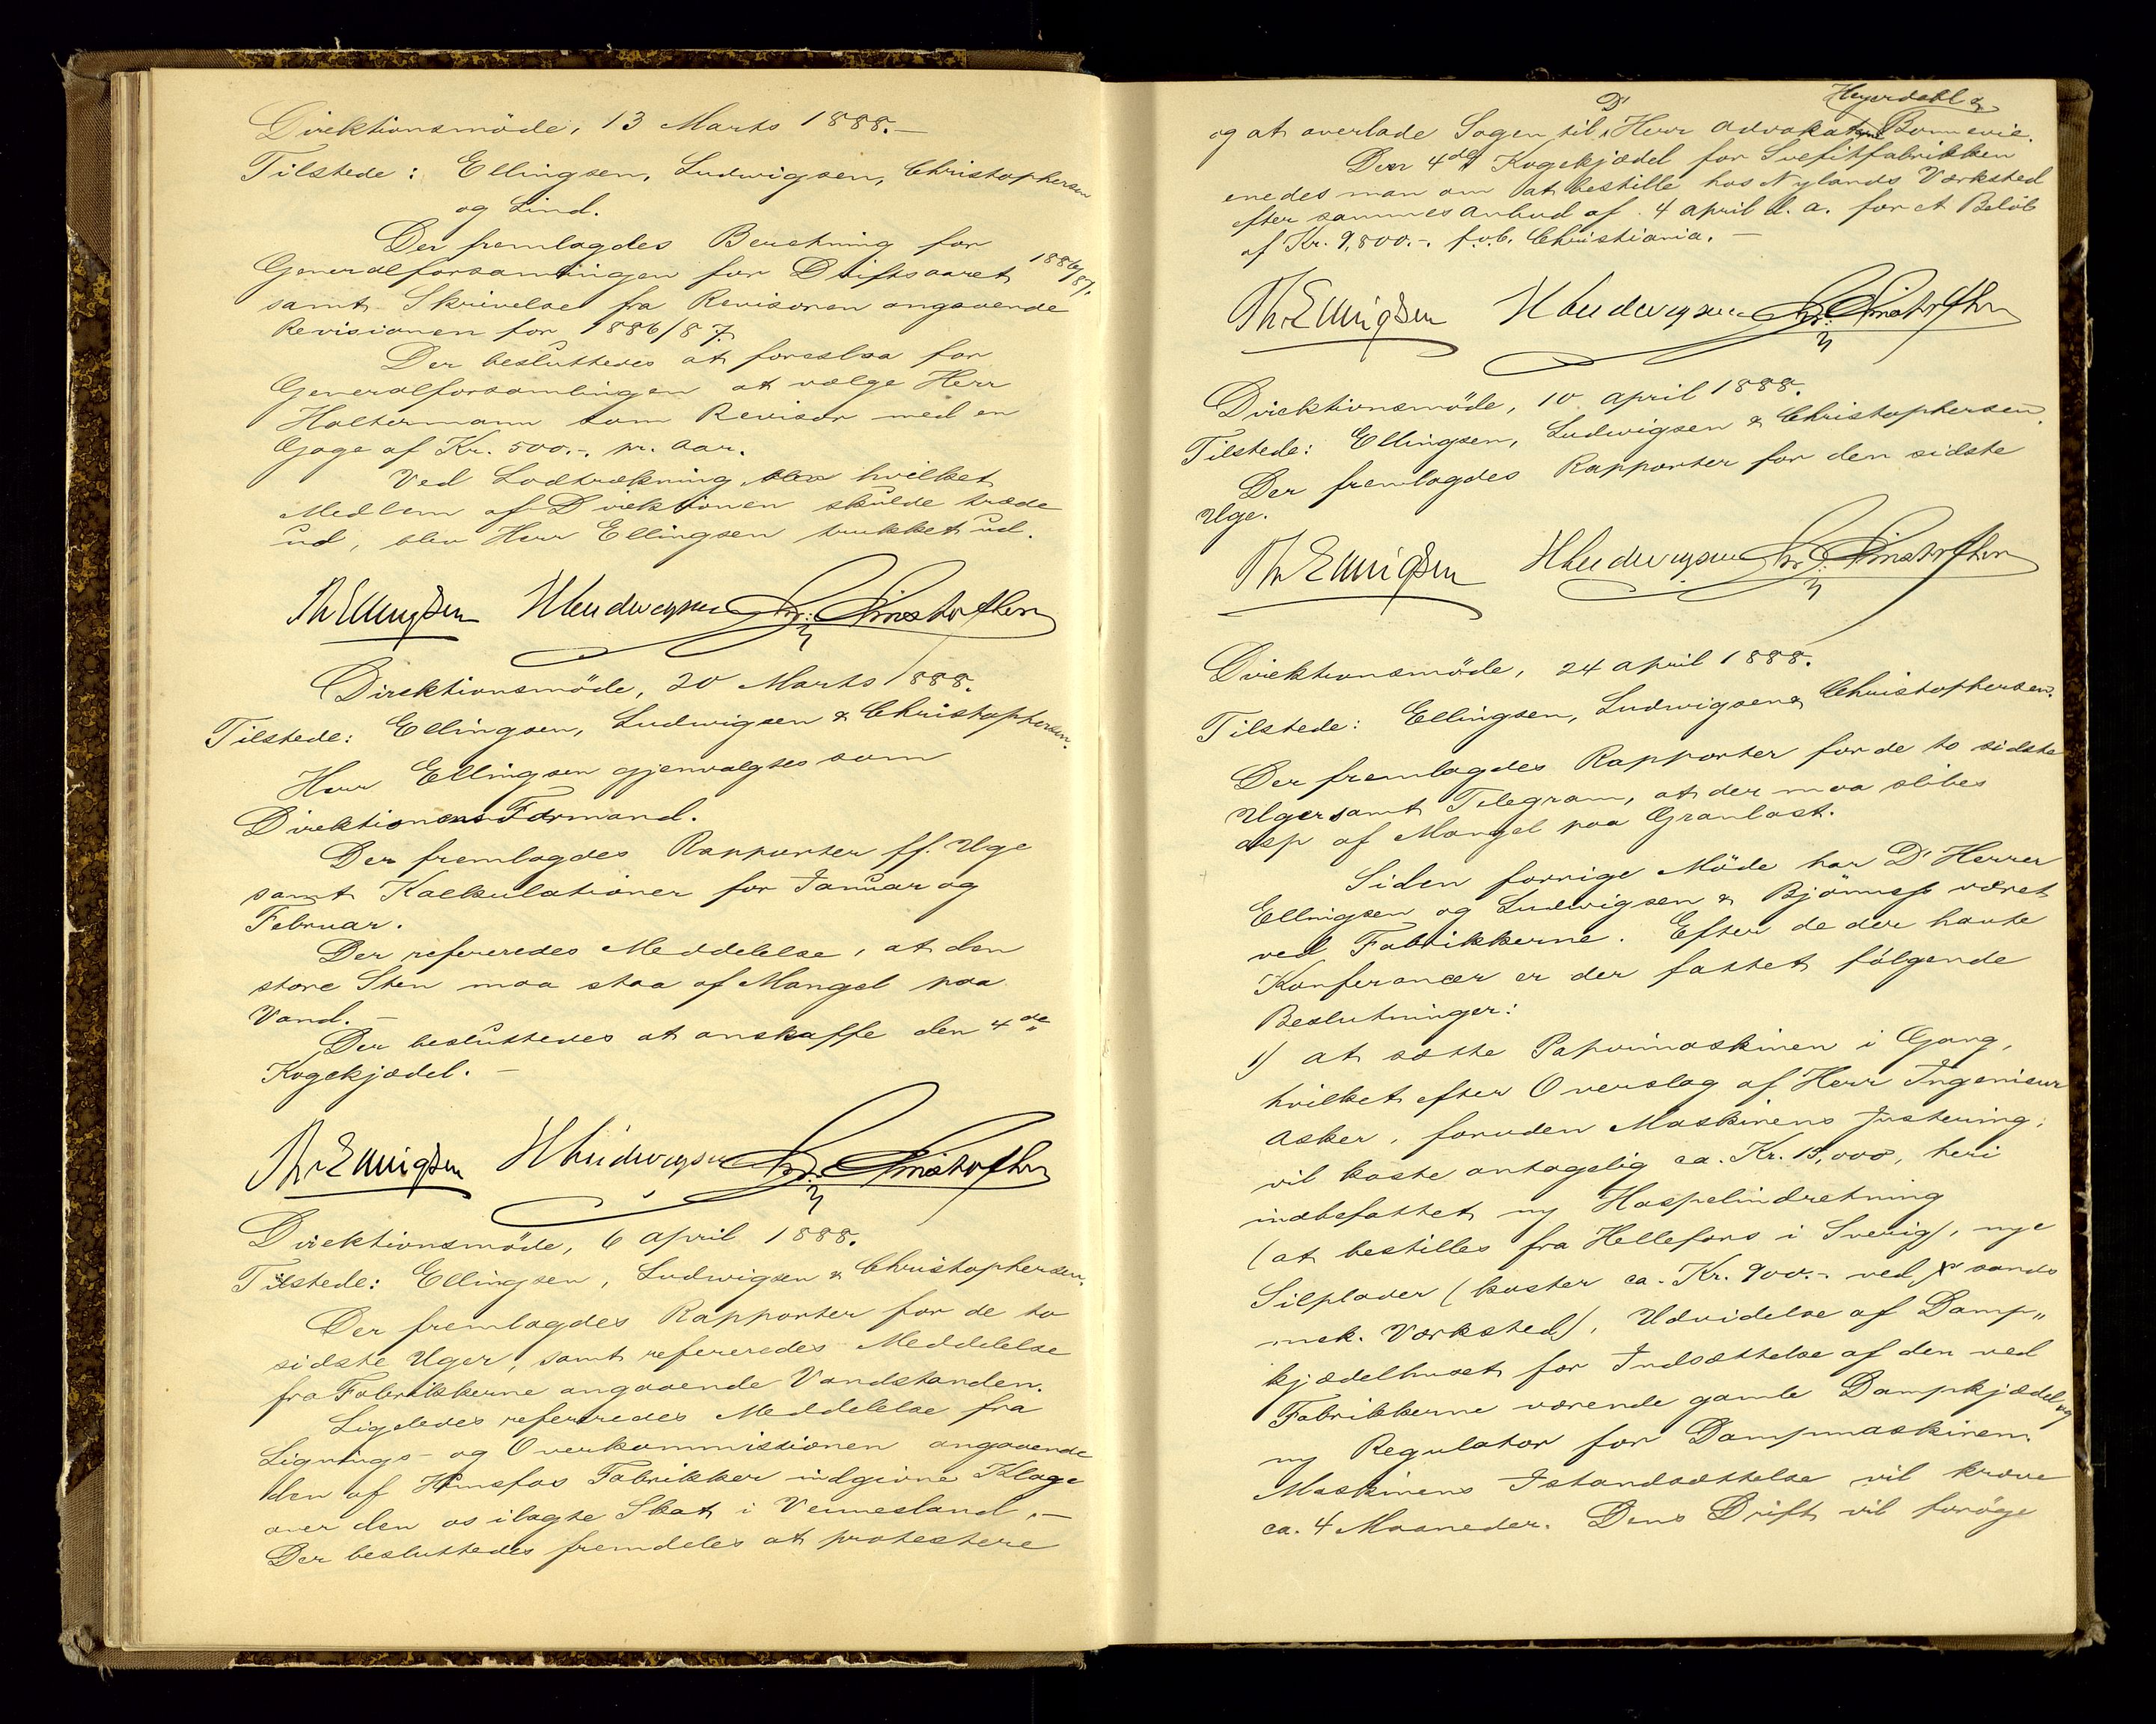 Direktionsmöde, 13 Marts 1888.—
Tilstede: Ellingsen, Ludwigsen, Christophersen
og Lind.
Der fremlagdes Beretning for
Generalforsamlingen for Driftsaaret 1886/87.
samt Skrivelse fra Revisoren angaaende
Revisionen for 1886/87.
Der besluttedes at foreslaa for
Generalforsamlingen at vælge Herr
Holtermann som Revisor med en
Gage af Kr. 500.-, pr. Aar.
Ved Lodtrækning, hvilket
Medlem af Direktionen skulde træde
ud, blev Herr Ellingsen trukket ud.
Th Ellingsen H Ludwigsen Chr. Christophersen
Direktionsmöde, 20 Marts 1888.
Tilstede: Ellingsen, Ludwigsen & Christophersen.
Herr Ellingsen gjenvalgtes som
Direktionens Formand.
Der fremlagdes Rapporter ff. Uge
samt Kalkulationer for Januar og
Februar.
Der refereredes Meddelelse, at den
store Sten maa staa af Mangel paa
Vand.—
Der besluttedes at anskaffe den 4de
Kogekjædel.—
Th. Ellingsen H Ludwigsen Chr. Christophersen
Direktionsmöde, 6 April 1888.
Tilstede: Ellingsen, Ludwigsen & Christophersen.
Der fremlagdes Rapporter for de to
sidste Uger, samt refereredes Meddelelse
fra Fabrikkerne angaaende Vandstanden.
Ligeledes refereredes Meddelelse fra
Lignings- og Overkommissionen angaaende
den af Hunsfos Fabrikker indgivne Klage
over den os ilagte Skat i Vennesland.—
Der besluttedes fremdeles at protestere
og at overlade Sagen til Dr Herr Advokat Heyerdahl & Bonnevie.
Den 4de Kogekjædel for Sulfitfabrikken
enedes man om at bestille hos Nylands Værksted
efter sammes Anbud af 4 April d. a. for et Beløb
af Kr. 9,800.-, f.o.b. Christiania.—
Th. Ellingsen H Ludwigsen Chr. Christophersen
Direktionsmöde, 10 April 1888.
Tilstede: Ellingsen, Ludwigsen & Christophersen.
Der fremlagdes Rapporter for den sidste
Uge.
Th. Ellingsen H Ludwigsen Chr. Christophersen
Direktionsmöde, 24 April 1888.
Tilstede: Ellingsen, Ludwigsen & Christophersen.
Der fremlagdes Rapporter for de to sidste
Uger samt Telegram, at der maa slibes
Asp af Mangel paa Granlast.
Siden forrige Möde har Dr Herrer
Ellingsen og Ludwigsen & været
ved Fabrikkerne. Efter de der havte
Konferancer er der fattet følgende
Beslutninger:
1) at sætte Papirmaskinen i Gang,
hvilket efter Overslag af Herr Ingeniør
Asker, foruden Maskinens Justering,
vil koste antagelig ca. Kr. 15,000, heri
indbefattet ny Haspelindretning
(at bestilles fra Hellefors i Sverig), nye
Silplader (koster ca. Kr. 900.- ved
mek. Værksted), Udvidelse af Damp„
kjædelhuset for Indsættelse af den ved
Fabrikkerne værende gamle Dampkjædel og
ny Regulator for Dampmaskinen.
Maskinens Istandsættelse vil kræve
ca. 4 Maaneder. Dens Drift vil forøge